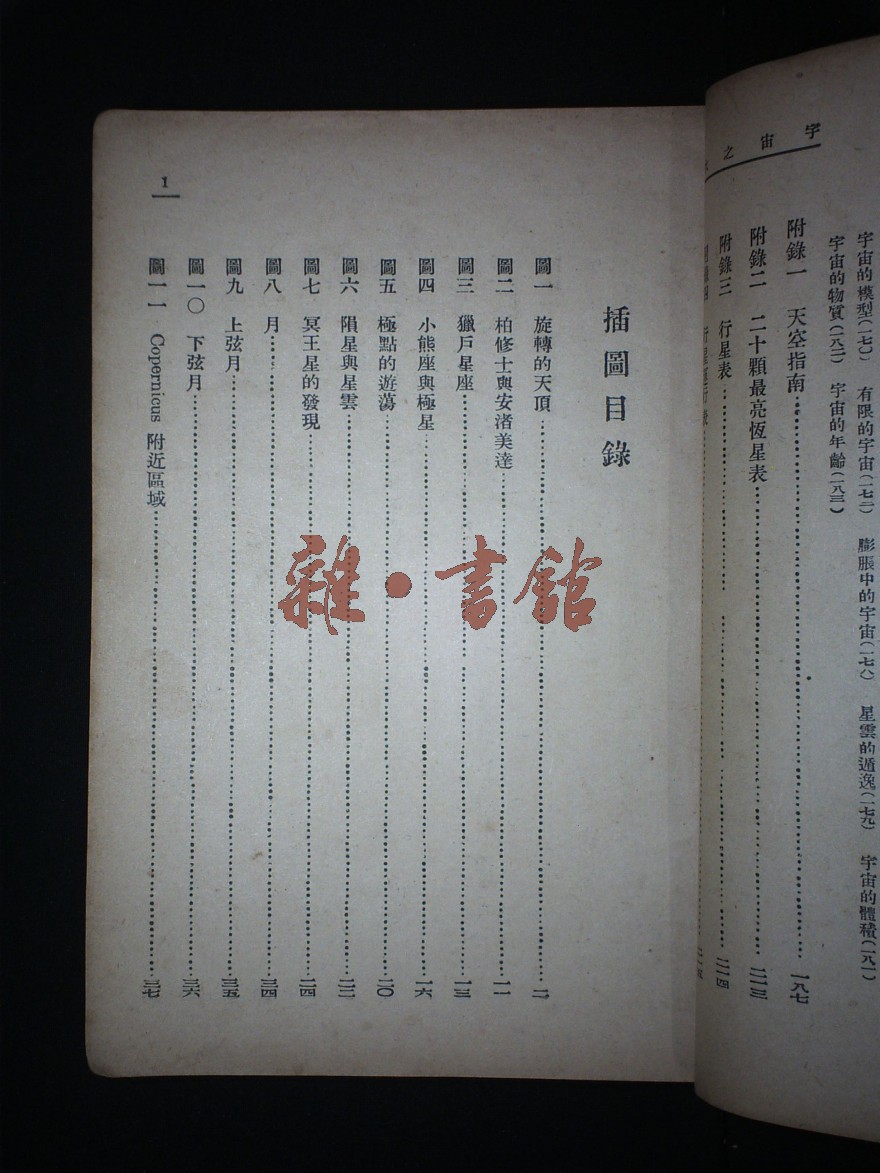 宇宙之
宇宙的模型(一七〇) 有限的宇宙(一七二) 膨脹中的宇宙(一七八) 星雲的遁逸(一七九) 宇宙的體積(一八一)
宇宙的物質(一八二) 宇宙的年齡(一八三)
附錄一 天空指南 一八七
附錄二 二十顆最亮恆星表 二一三
附錄三 行星表 二一四
1
插圖目錄
圖一 旋轉的天頂 二
圖二 柏修士與安渚美達 一一
圖三 獵戶星座 一三
圖四 小熊座與極星 一六
圖五 極點的遊蕩 二〇
圖六 隕星與星雲 二二
圖七 冥王星的發現 二四
圖八 月 三四
圖九 上弦月 三五
圖一〇 下弦月 三六
圖一一 Copernicus 附近區域 三七
雜·書館